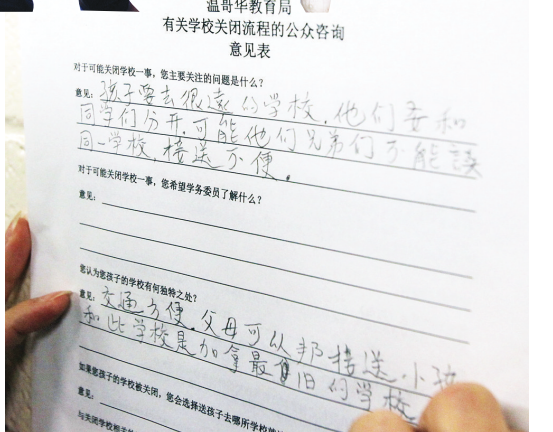 温哥华教育局
有关学校关闭流程的公众咨询
意见表
对于可能关闭学校一事，您主要关注的问题是什么？
意见：孩子要去很遠的学校，他们要和
同学们分开，可能他们兄弟们不能讀
同一学校，接送不便。
对于可能关闭学校一事，您希望学务委员了解什么？
意见：
您认为您孩子的学校有何独特之处？
意见：交通方便，父母可以邦接送小孩
和此学校是加拿最旧的学校
如果您孩子的学校被关闭，您会选择送孩子去哪所学校就
意见：
与关闭学校相关